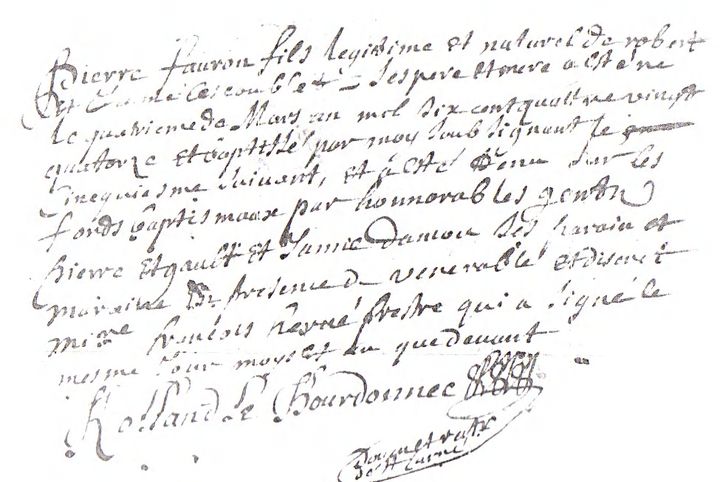 Pierre fauron fils legitime et naturel de robert
et ses pere et mere a esté ne
le quatriesme de Mars an mil six cent quattre vingt
quatorze et baptisé par moy soubsignant le
cinequiesme suivant, et a esté tenu sur les
fonds baptismaux par honnorables gents
Pierre et Janne damou ses parain et
maraine En presence de venerable et discret
missire francois herué prestre qui a signé le
mesme jour mois et an que devant
Rolland le Bourdonnec